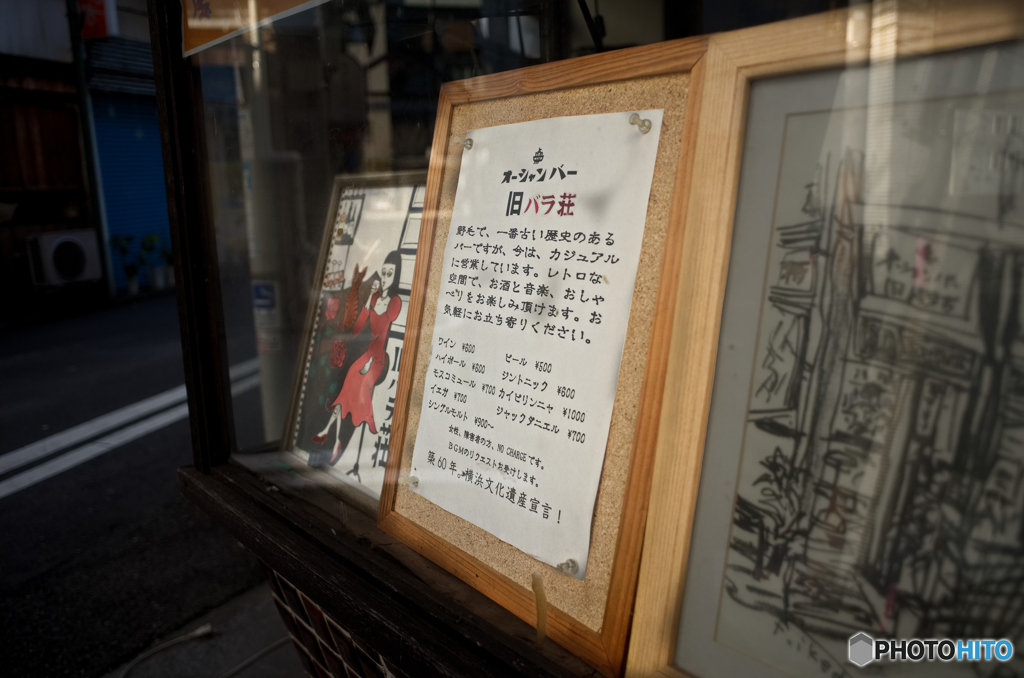 オーシャンバー
旧バラ荘
野毛で、一番古い歴史のある
バーですが、今は、カジュアル
に営業しています。レトロな
空間で、お酒と音楽、おしゃ
べりをお楽しみ頂けます。お
気軽にお立ち寄りください。
ワイン ¥600 ビール ¥500
ハイボール ¥600 ジントニック ¥600
モスコミュール ¥700 カイピリンニャ ¥1000
イエガ ¥700 ジャックダニエル ¥700
シングルモルト ¥900〜
女性、障害者の方、NO CHARGEです。
BGMのリクエストお受けします。
築60年。横浜文化遺産宣言！
PHOTOHITO